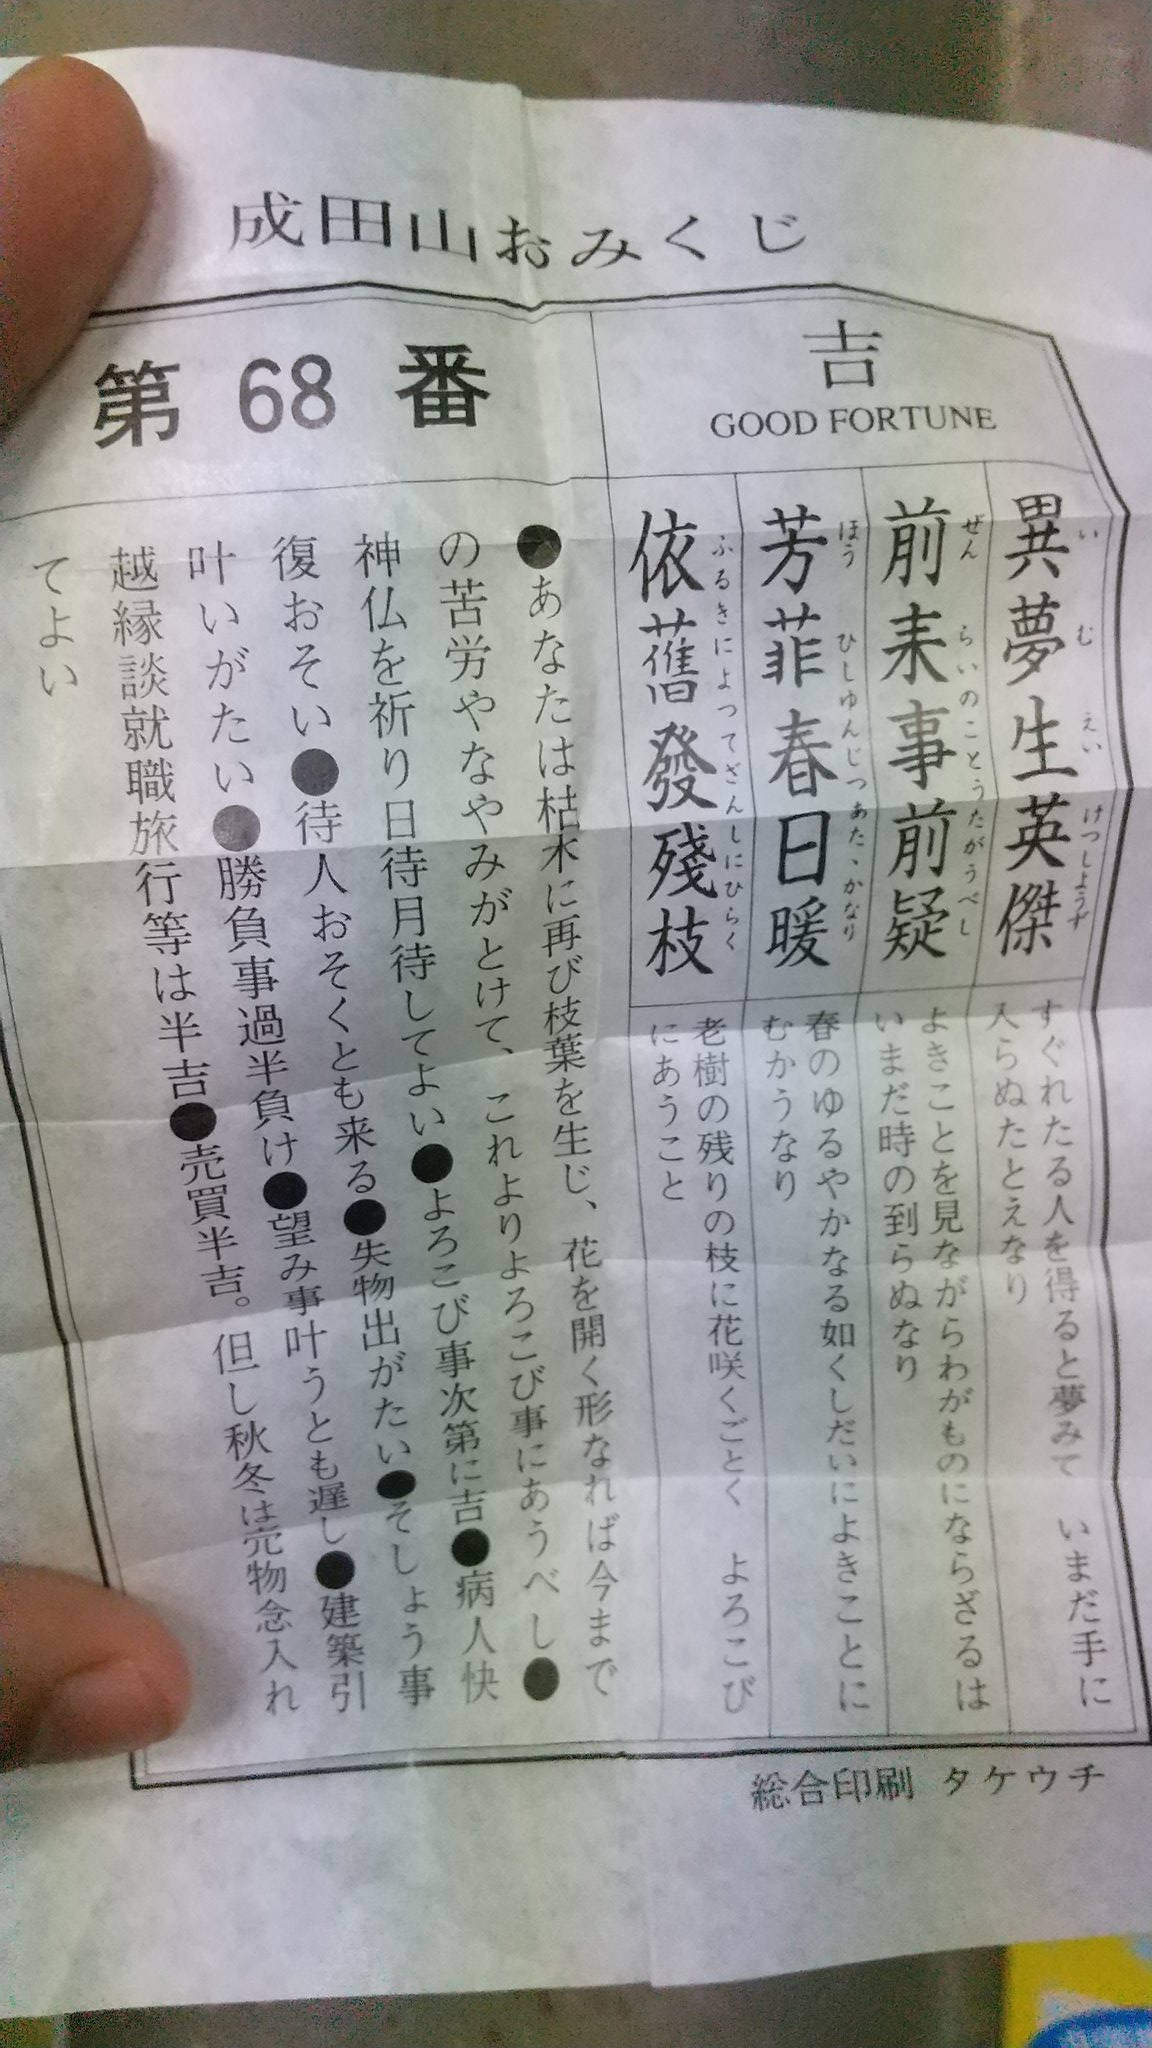 成田山おみくじ
吉
GOOD FORTUNE
第68番
異夢生英傑
いむえいけつしようず
すぐれたる人を得ると夢みて いまだ手に
入らぬたとえなり
前耒事前疑
ぜんらいのことうたがうべし
よきことを見ながらわがものにならざるは
いまだ時の到らぬなり
芳菲春日暖
ほうひしゆんじつあたゝかなり
春のゆるやかなる如くしだいによきことに
むかうなり
依舊發殘枝
ふるきによつてざんしにひらく
老樹の残りの枝に花咲くごとく よろこび
にあうこと
●あなたは枯木に再び枝葉を生じ、花を開く形なれば今まで
の苦労やなやみがとけて、これよりよろこび事にあうべし●
神仏を祈り日待月待してよい●よろこび事次第に吉●病人快
復おそい●待人おそくとも来る●失物出がたい●そしょう事
叶いがたい●勝負事過半負け●望み事叶うとも遅し●建築引
越縁談就職旅行等は半吉●売買半吉。但し秋冬は売物念入れ
てよい
総合印刷 タケウチ